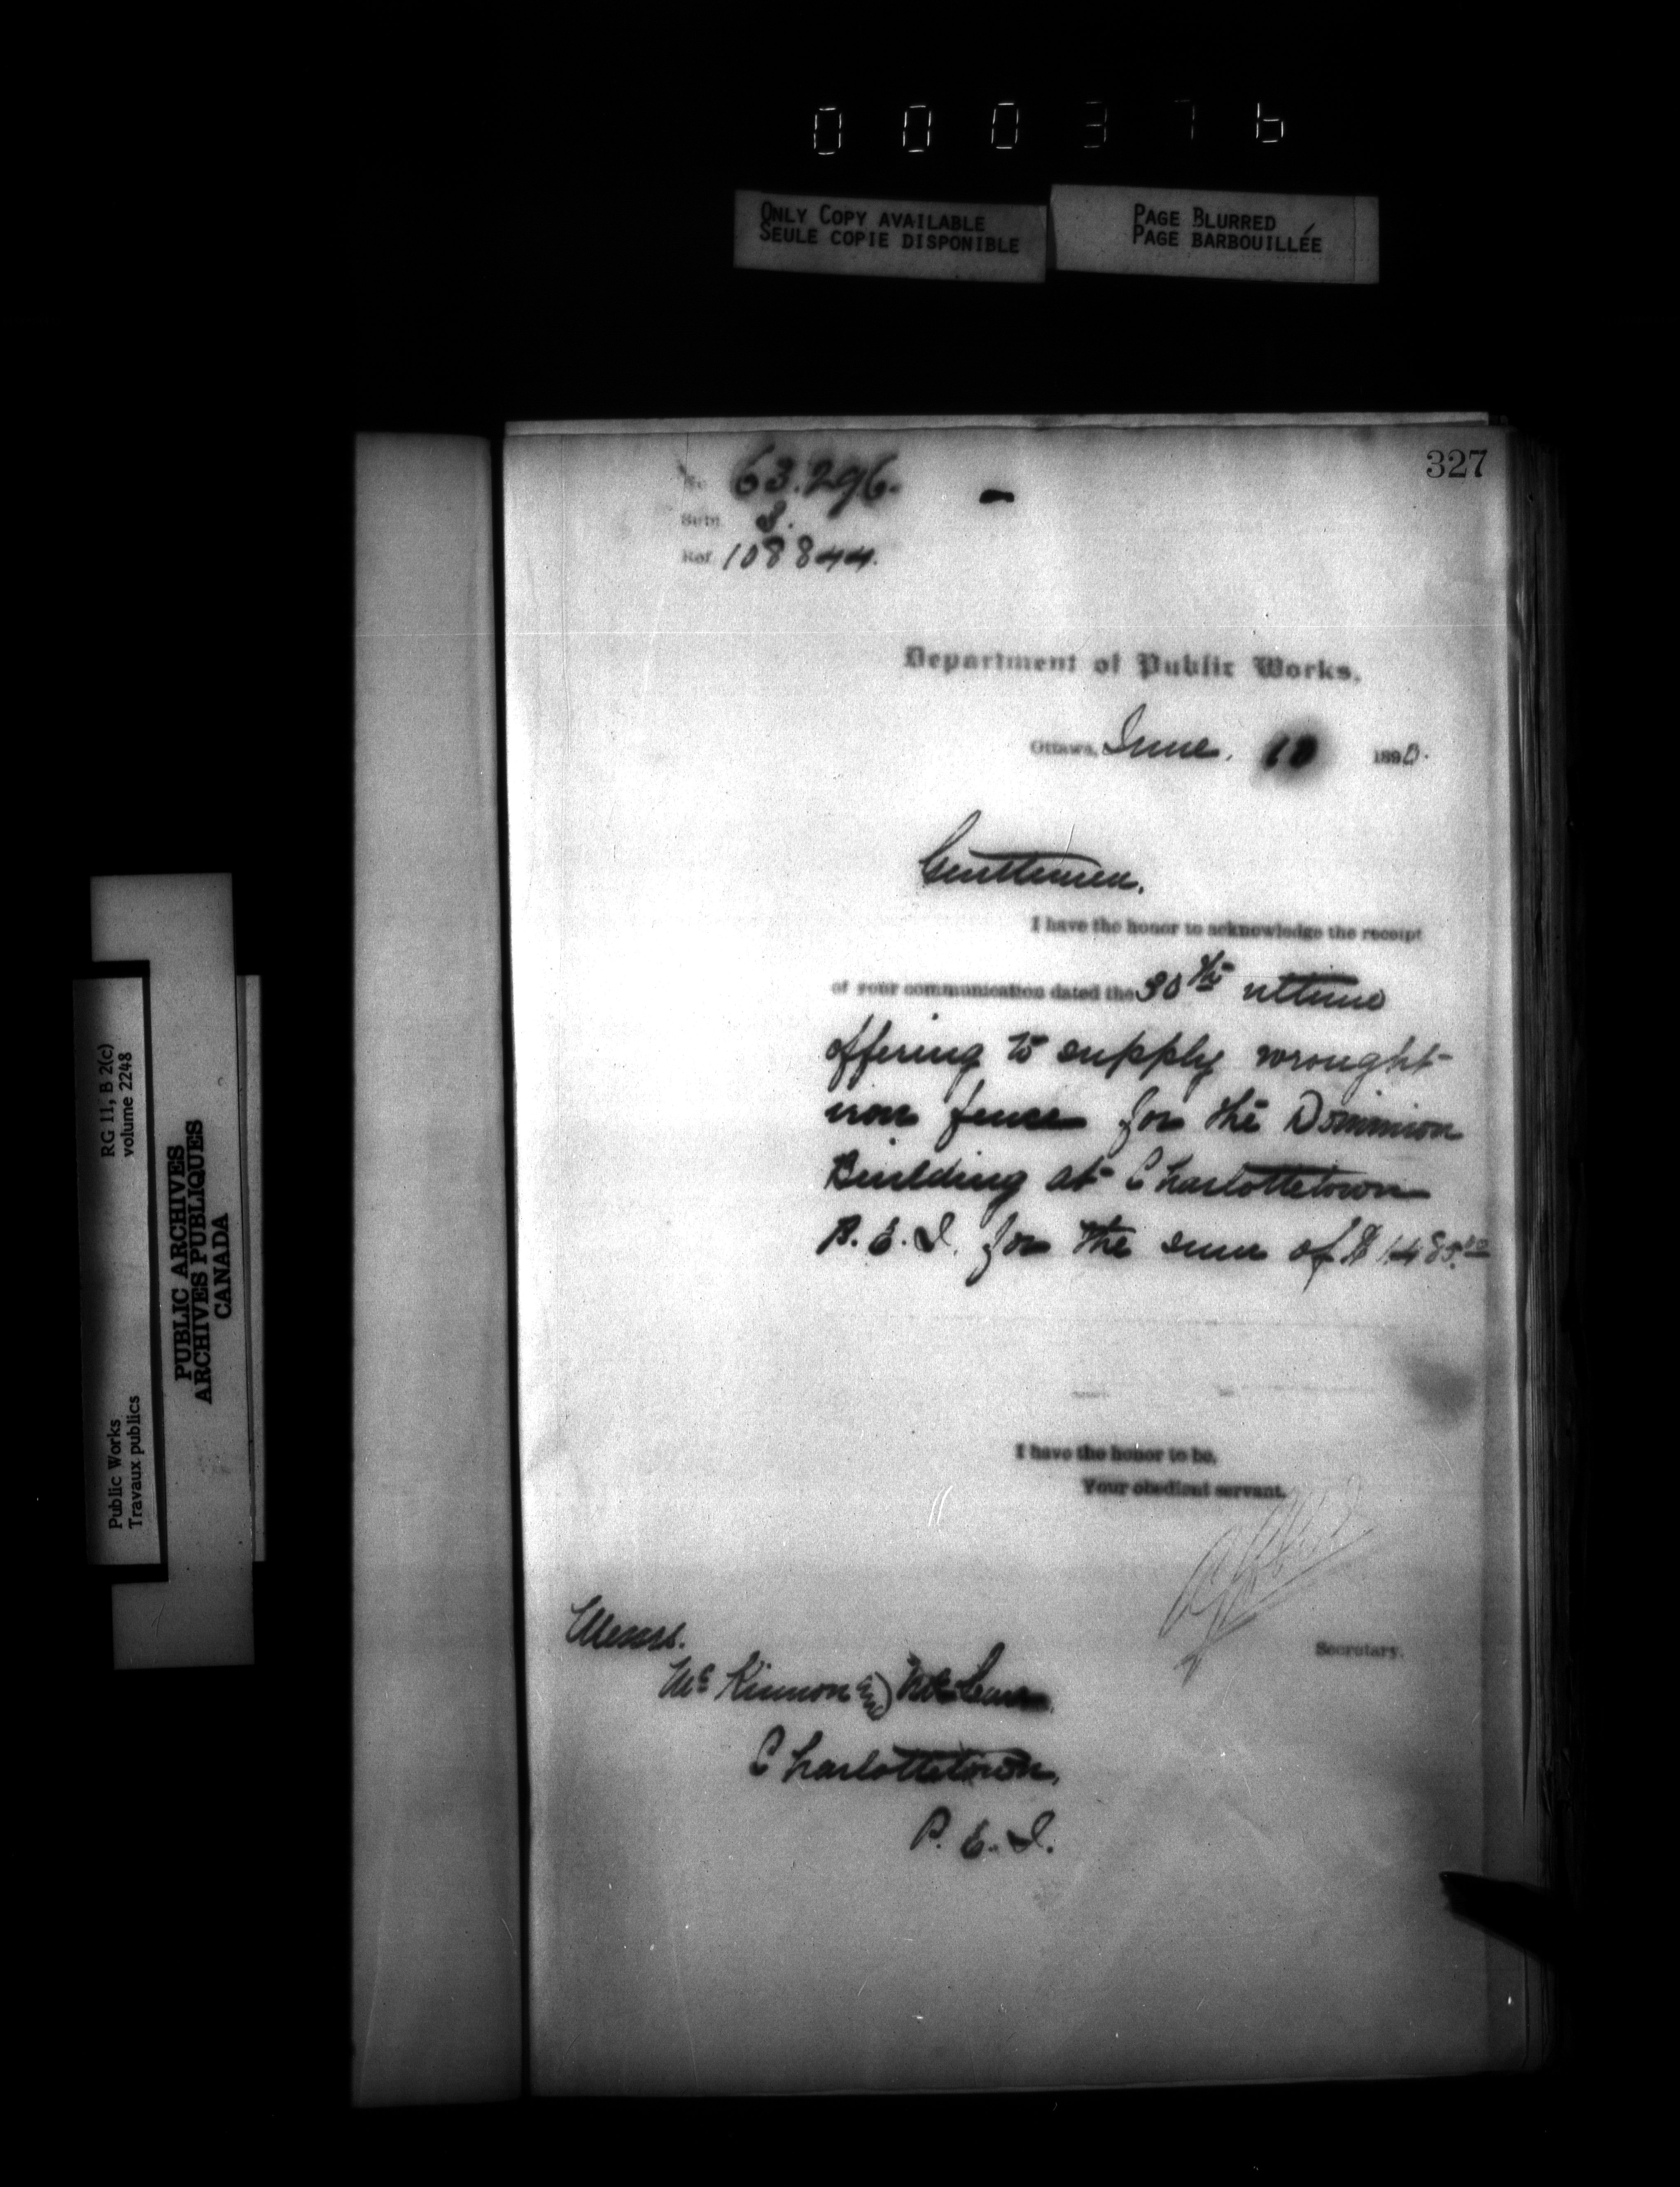 0 0 0 3 7 6
ONLY COPY AVAILABLE
SEULE COPIE DISPONIBLE
PAGE BLURRED
PAGE BARBOUILLÉE
327
No. 63.296.
Subj.
Ref. 108844.
Department of Public Works.
Ottawa, June, 10 1890.
Gentlemen.
I have the honor to acknowledge the receipt
of your communication dated the 30th ultimo
offering to supply wrought-
iron fence for the Dominion
Building at Charlottetown
P. E. I. for the sum of $1485.00
I have the honor to be,
Your obedient servant.
Secretary.
Messrs.
McKinnon &
Charlottetown,
P. E. I.
RG 11, B 2(c)
volume 2248
Public Works
Travaux publics
PUBLIC ARCHIVES
ARCHIVES PUBLIQUES
CANADA